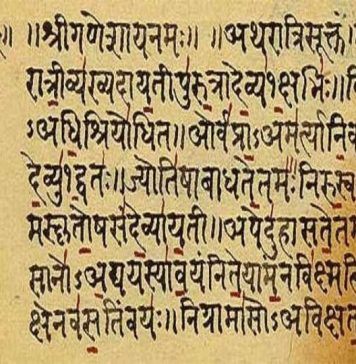 ॥ ॥श्रीगणेशायनमः॥ ॥अथरात्रिसूक्तं।
रात्रीव्यख्यदायतीपुरुत्रादेव्य१क्षभिः॥वि
ऽअधिश्रियोधित॥ओर्वप्राऽअमर्त्यानिव
देव्यु१द्वतः॥ज्योतिषाबाधतेतमः॥निरुस्व
मस्कृतोषसंदेव्यायती॥अपेदुहासतेतम
सानोऽअद्ययस्यावयंनितेयामन्नविक्ष्म
क्षेनवसतिंवयः॥निग्रामासोऽअविक्षत